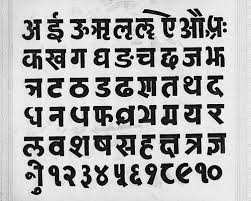 अ ई ऊ ऋ ल ॡ ऐ औ प्रः
क ख ग घ ङ च छ ज झ
ञ ट ठ ड ढ ण त थ द
ध न प फ ब भ म य र
ल व श ष स ह क्ष त्र ज्ञ
१ २ ३ ४ ५ ६ ७ ८ ९ १ ०